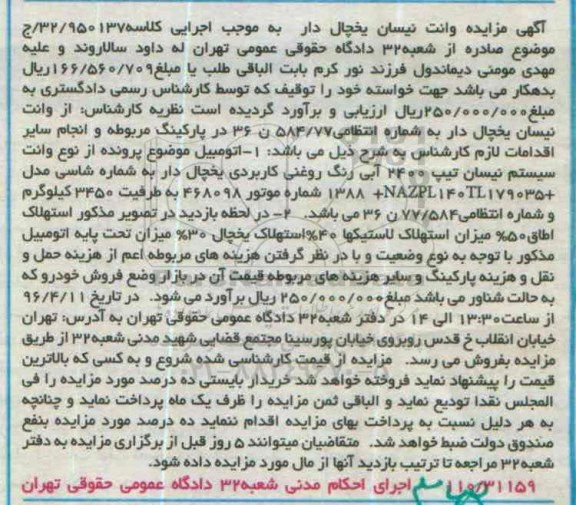 آگهی مزایده وانت نیسان یخچال دار به موجب اجرایی کلاسه۳۲/۹۵۰۱۳۷/ج
موضوع صادره از شعبه۳۲ دادگاه حقوقی عمومی تهران له داود سالاروند و علیه
مهدی مومنی دیماندول فرزند نور کرم بابت الباقی طلب با مبلغ۱۶۶/۵۶۰/۷۰۹ریال
بدهکار می باشد جهت خواسته خود را توقیف که توسط کارشناس رسمی دادگستری به
مبلغ۲۵۰/۰۰۰/۰۰۰ریال ارزیابی و برآورد گردیده است نظریه کارشناس: از وانت
نیسان یخچال دار به شماره انتظامی۵۸۴/۷۷ ن ۳۶ در پارکینگ مربوطه و انجام سایر
اقدامات لازم کارشناس به شرح ذیل می باشد: ۱-اتومبیل موضوع پرونده از نوع وانت
سیستم نیسان تیپ ۲۴۰۰ آبی رنگ روغنی کاربردی یخچال دار به شماره شاسی مدل
+NAZPL۱۴۰TL۱۷۹۰۳۵+ ۱۳۸۸ شماره موتور ۴۶۸۰۹۸ به ظرفیت ۳۴۵۰ کیلوگرم
و شماره انتظامی۷۷/۵۸۴ ن ۳۶ می باشد. ۲- در لحظه بازدید در تصویر مذکور استهلاک
اطاق۵۰% میزان استهلاک لاستیکها ۴۰%استهلاک یخچال ۳۰% میزان تحت پایه اتومبیل
مذکور با توجه به نوع وضعیت و با در نظر گرفتن هزینه های مربوطه اعم از هزینه حمل و
نقل و هزینه پارکینگ و سایر هزینه های مربوطه قیمت آن در بازار وضع فروش خودرو که
به حالت شناور می باشد مبلغ۲۵۰/۰۰۰/۰۰۰ ریال برآورد می شود. در تاریخ ۹۶/۴/۱۱
از ساعت۱۳:۳۰ الی ۱۴ در دفتر شعبه۳۲ دادگاه عمومی حقوقی تهران به آدرس: تهران
خیابان انقلاب خ قدس روبروی خیابان پورسینا مجتمع قضایی شهید مدنی شعبه۳۲ از طریق
مزایده بفروش می رسد. مزایده از قیمت کارشناسی شده شروع و به کسی که بالاترین
قیمت را پیشنهاد نماید فروخته خواهد شد خریدار بایستی ده درصد مورد مزایده را فی
المجلس نقدا تودیع نماید و الباقی ثمن مزایده را ظرف یک ماه پرداخت نماید و چنانچه
به هر دلیل نسبت به پرداخت بهای مزایده اقدام ننماید ده درصد مورد مزایده بنفع
صندوق دولت ضبط خواهد شد. متقاضیان میتوانند ۵ روز قبل از برگزاری مزایده به دفتر
شعبه۳۲ مراجعه تا ترتیب بازدید آنها از مال مورد مزایده داده شود.
۱۱۰/۳۱۱۵۹ اجرای احکام مدنی شعبه۳۲ دادگاه عمومی حقوقی تهران